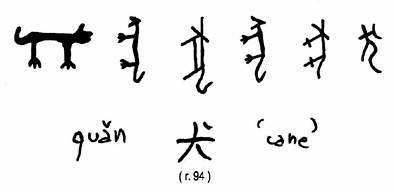 quǎn 犬 'cane'
(r.94)